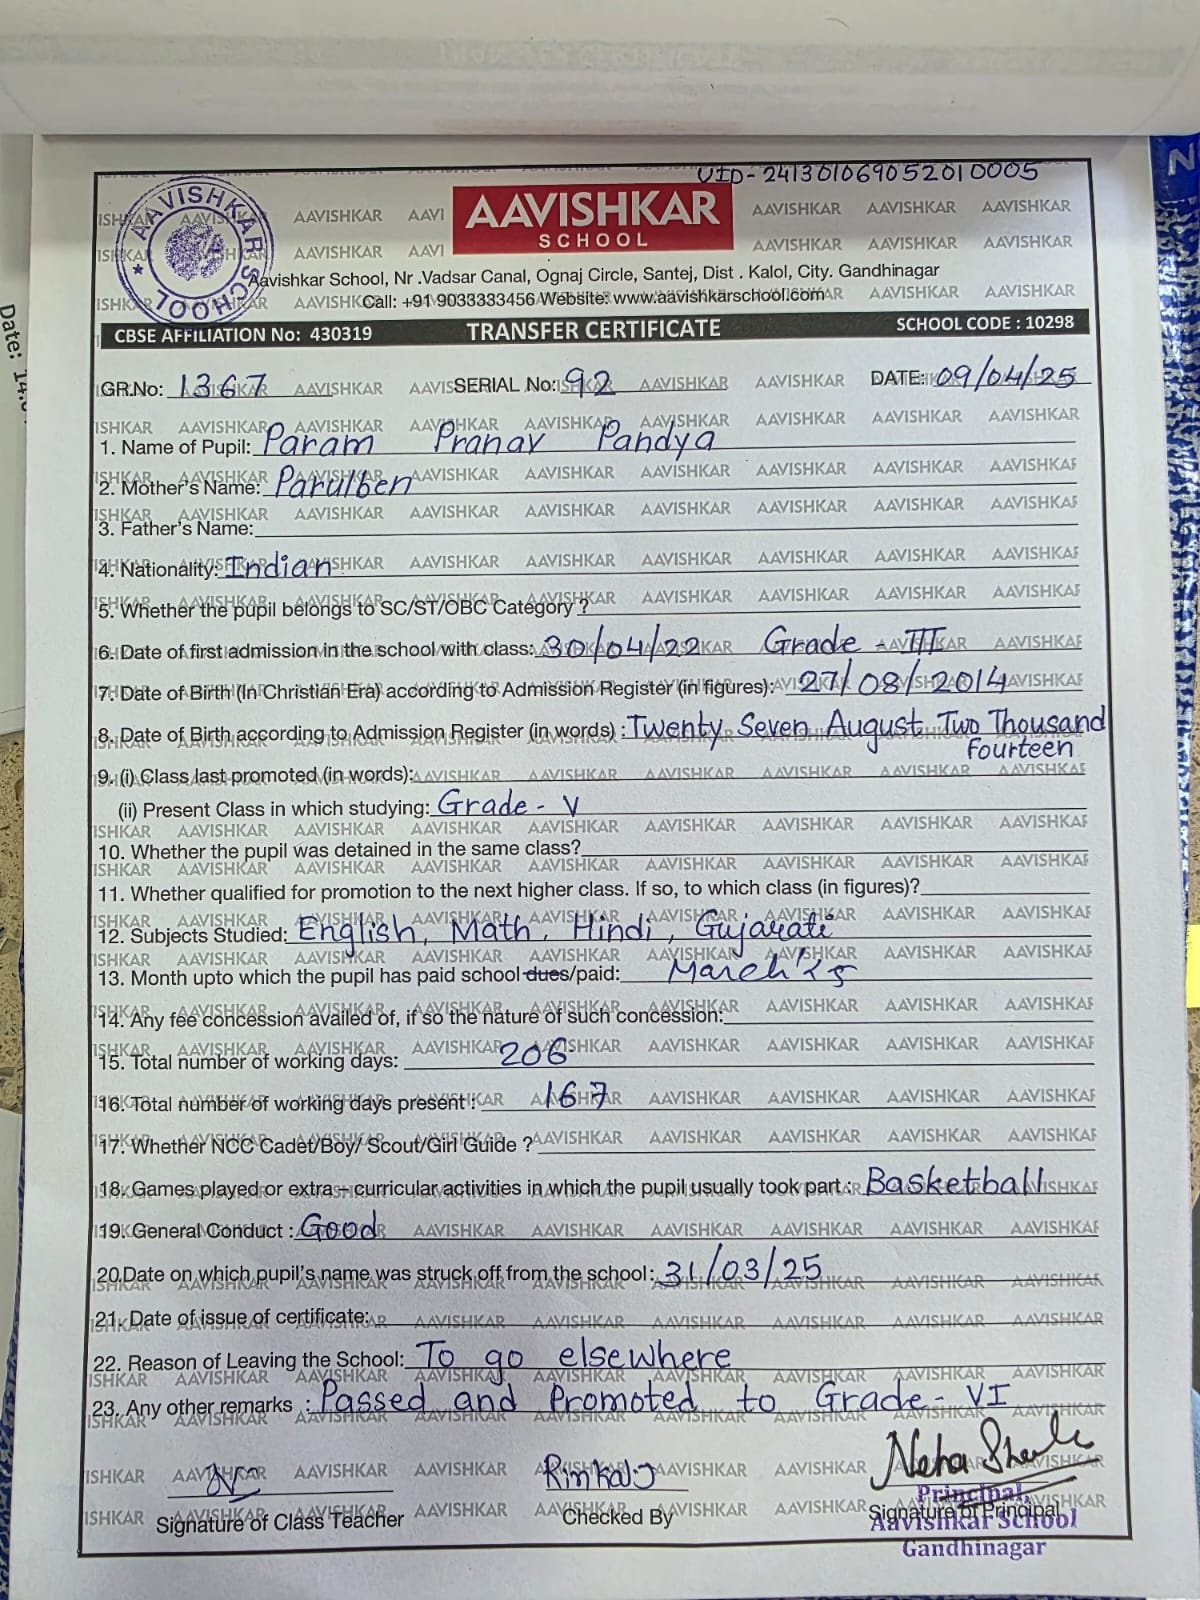 UID-241301069052010005
AAVISHKAR SCHOOL
AAVISHKAR
SCHOOL
Aavishkar School, Nr .Vadsar Canal, Ognaj Circle, Santej, Dist . Kalol, City. Gandhinagar
Call: +91 9033333456 Website: www.aavishkarschool.com
CBSE AFFILIATION No: 430319 TRANSFER CERTIFICATE SCHOOL CODE : 10298
GR.No: 1367 SERIAL No: 92 DATE: 09/04/25
1. Name of Pupil: Param Pranav Pandya
2. Mother's Name: Parulben
3. Father's Name:
4. Nationality: Indian
5. Whether the pupil belongs to SC/ST/OBC Category ?
6. Date of first admission in the school with class: 30/04/22 Grade III
7. Date of Birth (In Christian Era) according to Admission Register (in figures): 27/08/2014
8. Date of Birth according to Admission Register (in words) : Twenty Seven August Two Thousand
fourteen
9. (i) Class last promoted (in words):
(ii) Present Class in which studying: Grade - V
10. Whether the pupil was detained in the same class?
11. Whether qualified for promotion to the next higher class. If so, to which class (in figures)?
12. Subjects Studied: English, Math, Hindi, Gujarati
13. Month upto which the pupil has paid school dues/paid: March'25
14. Any fee concession availed of, if so the nature of such concession:
15. Total number of working days: 206
16. Total number of working days present : 167
17. Whether NCC Cadet/Boy/ Scout/Girl Guide ?
18. Games played or extra – curricular activities in which the pupil usually took part : Basketball
19. General Conduct : Good
20.Date on which pupil's name was struck off from the school: 31/03/25
21. Date of issue of certificate:
22. Reason of Leaving the School: To go elsewhere
23. Any other remarks : Passed and Promoted to Grade - VI
Rinkal Neha
Signature of Class Teacher Checked By Signature of Principal
Principal,
Aavishkar School
Gandhinagar